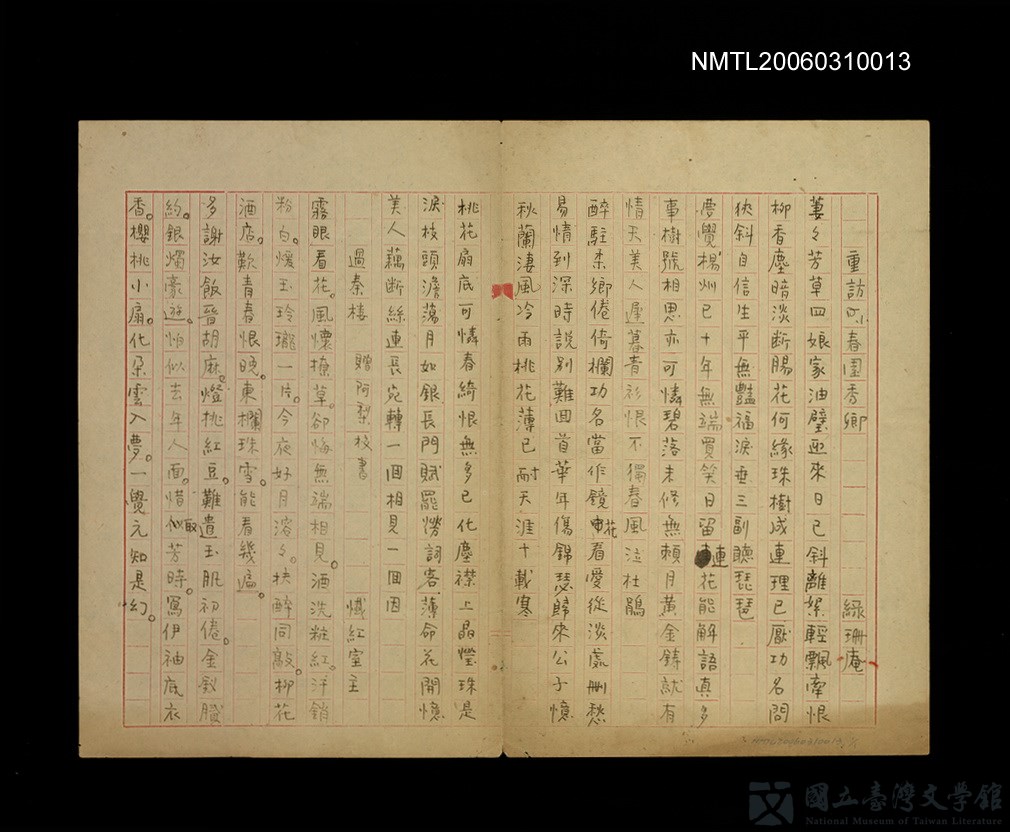 NMTL20060310013
重訪呎春園秀卿 綠珊庵
萋々芳草四娘家油璧迎來日已斜離絮輕飄牽恨
柳香塵暗淡斷腸花何緣珠樹成連理已厭功名問
狹斜自信生平無豔福淚垂三副聽琵琶
慶覺楊州已十年無端買笑日留連花能解語真多
事樹號相思亦可憐碧落未修無賴月黃金鑄就有
情天美人遲暮青衫恨不獨春風泣杜鵑
醉駐柔鄉倦倚欄功名當作鏡花看愛從淡處刪愁
易情到深時說別難回首華年傷錦瑟歸來公子憶
秋蘭淒風冷雨桃花薄已耐天涯十載寒
桃花扇底可憐春綺恨無多已化塵襟上晶瑩珠是
淚枝頭澹蕩月如銀長門賦罷勞詞客薄命花開憶
美人藕斷絲連長宛轉一回相見一回因
過秦樓 贈阿梨校書 懺紅室主
霧眼看花。風懷撩草。卻悔無端相見。酒洗粧紅。汗銷
粉白。懷玉玲瓏一片。今夜好月溶々。扶醉同敲。柳花
酒店。歎青春恨晚。東欄珠雪。能看幾遍。
多謝汝飯晉胡麻。燈挑紅豆。難遣玉肌初倦。金釵賸
約。銀燭豪遊。怕似去年人面。惜取芳時。寫伊袖底衣
香。櫻桃小扇。化朵雲入夢。一覺元知是幻。
國立臺灣文學館
National Museum of Taiwan Literature